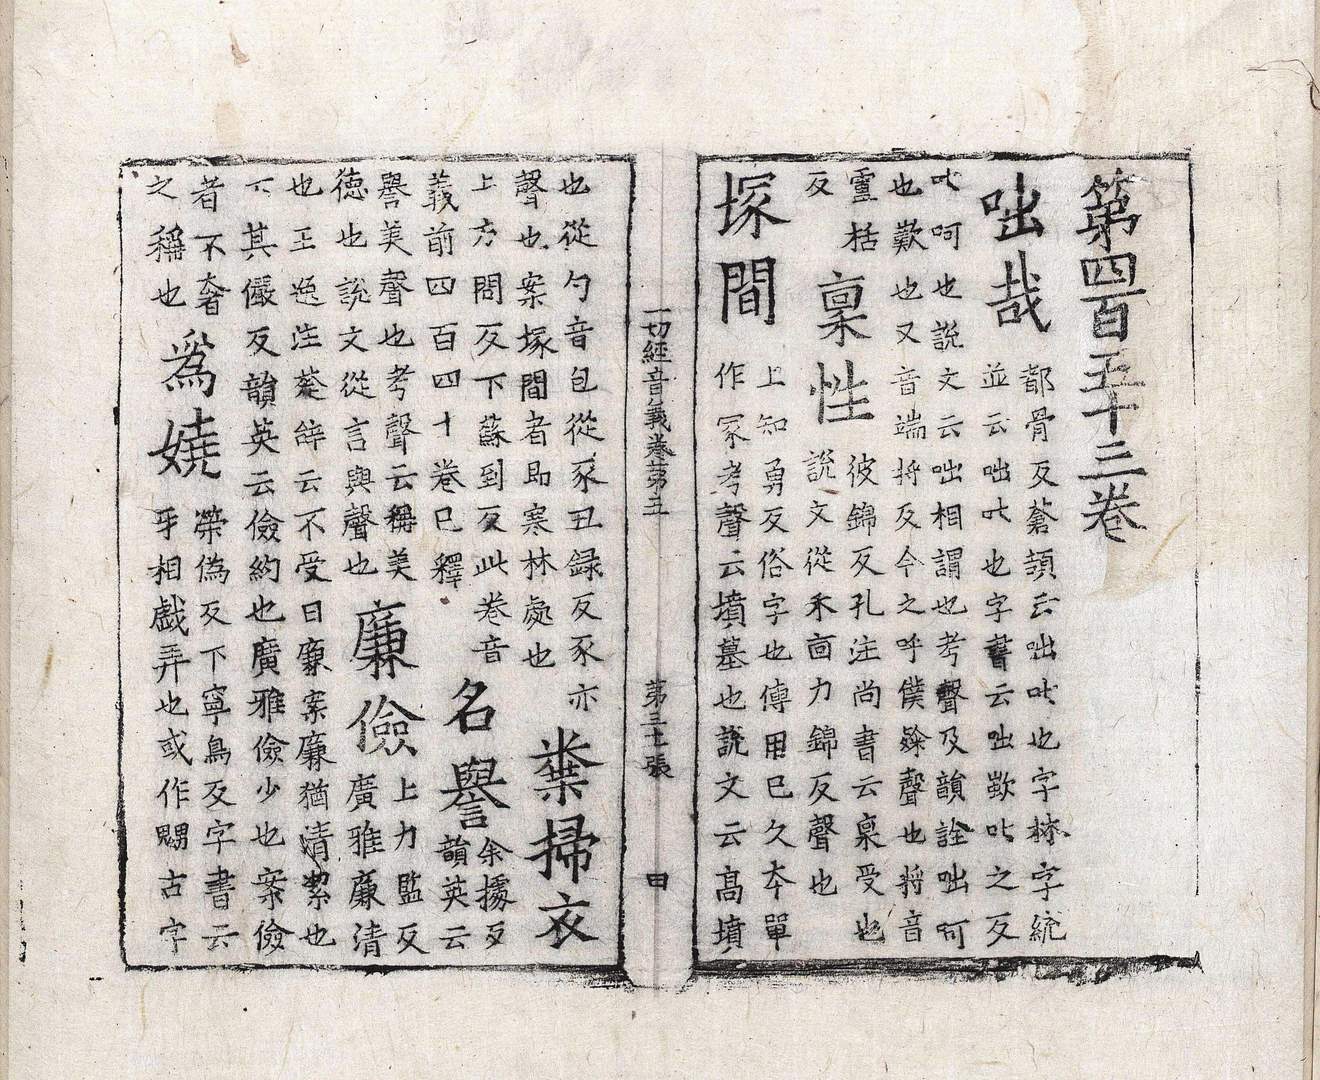 第四百五十三卷
咄哉
都骨反蒼頡云咄叱也字林字統
並云咄叱也字書云咄歎叱之反
叱呵也説文云咄相謂也考聲及韻詮咄呵
也歎也又音端捋反今之呼僕隸聲也捋音
鸞括
反
稟性
彼錦反孔注尚書云稟受也
説文從禾㐭力錦反聲也
塚間
上知勇反俗字也傳用已久本單
作冢考聲云墳墓也説文云髙墳
一切經音義卷第五 第三十張
也從勹音包從豕丑録反豕亦
聲也案塚間者即寒林處也
糞掃衣
上方問反下蘇到反此卷音
義前四百四十卷已釋
名譽
余據反
韻英云
譽美聲也考聲云稱美
徳也説文從言與聲也
廉儉
上力監反
廣雅廉清
也王逸注楚辭云不受曰廉案廉猶清絜也
下其儼反韻英云儉約也廣雅儉少也案儉
者不奢
之稱也
爲嬈
榮偽反下寧鳥反字書云
乎相戲弄也或作嬲古字